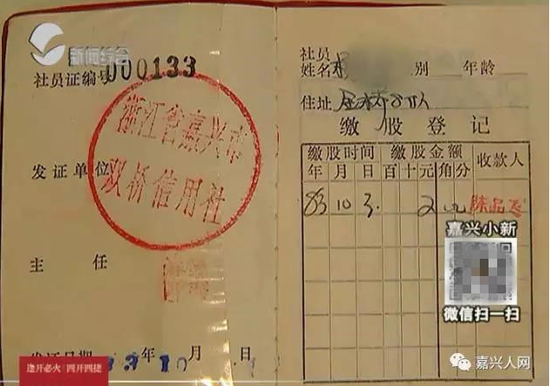 新闻综合
社员证编号 000133
浙江省嘉兴市
双桥信用社
发证单位
主 任
发证日期 年 10 月 日
逢开必火 | 四开四捷
社员
姓名 别 年龄
住址
缴股登记
缴股时间 缴股金额 收款人
年 月 日 百 十 元 角 分
83 10 3. 2
嘉兴小新
微信扫一扫
嘉兴人网